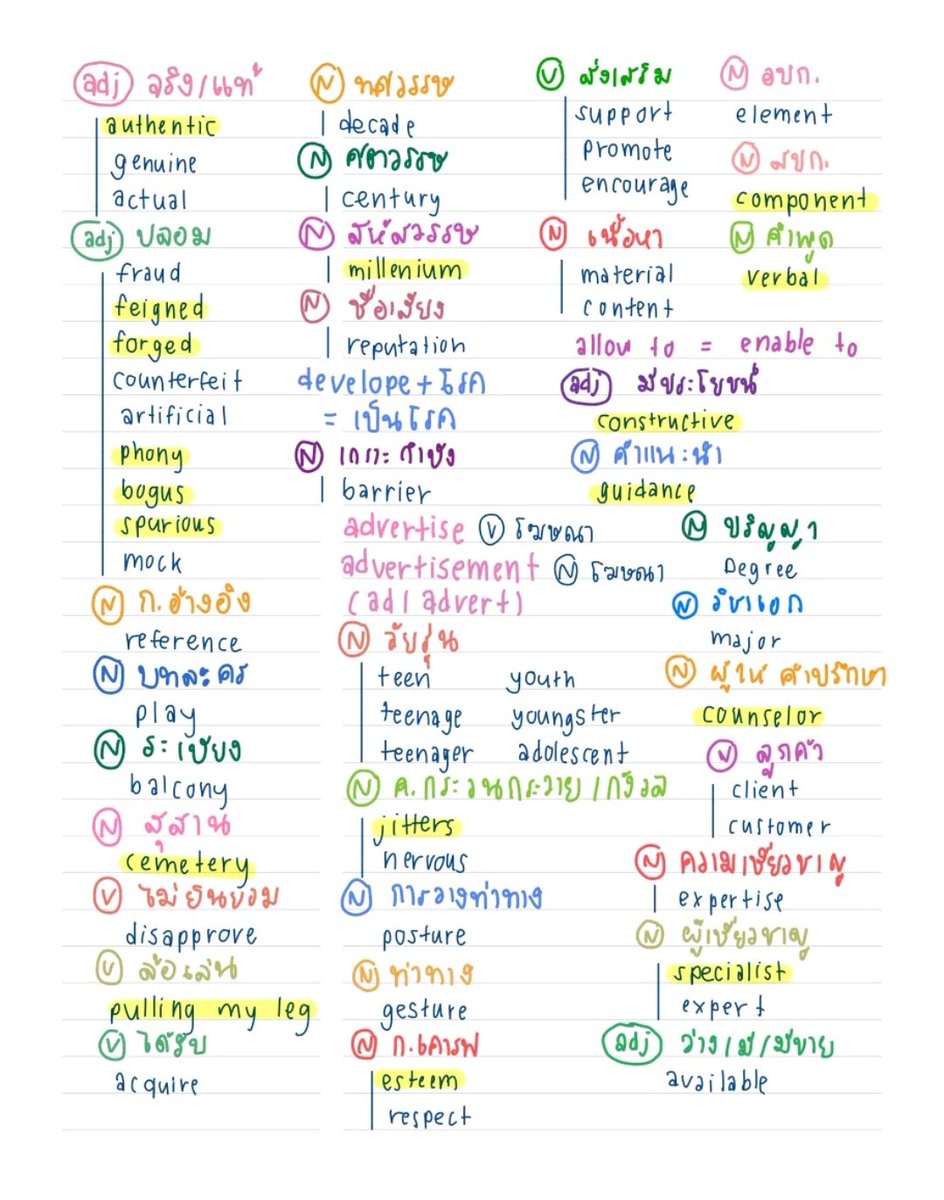 adj จริง/แท้
authentic
genuine
actual
adj ปลอม
fraud
feigned
forged
counterfeit
artificial
phony
bogus
spurious
mock
N ก.อ้างอิง
reference
N บทละคร
play
N ระเบียง
balcony
N สุสาน
cemetery
V ไม่ยินยอม
disapprove
V ล้อเล่น
pulling my leg
V ได้รับ
acquire
N ทศวรรษ
decade
N ศตวรรษ
century
N สหัสวรรษ
millenium
N ชื่อเสียง
reputation
develope + โรค
= เป็นโรค
N เกราะกำบัง
barrier
advertise V โฆษณา
advertisement N โฆษณา
(ad/advert)
N วัยรุ่น
teen youth
teenage youngster
teenager adolescent
N ค.กระวนกระวาย/กังวล
jitters
nervous
N การวางท่าทาง
posture
N ท่าทาง
gesture
N ก.เคารพ
esteem
respect
V ส่งเสริม
support
promote
encourage
N เนื้อหา
material
content
N อปก.
element
N สปก.
component
N คำพูด
verbal
allow to = enable to
adj มีประโยชน์
constructive
N คำแนะนำ
guidance
N ปริญญา
Degree
N วิชาเอก
major
N ผู้ให้คำปรึกษา
counselor
N ลูกค้า
client
customer
N ความเชี่ยวชาญ
expertise
N ผู้เชี่ยวชาญ
specialist
expert
adj ว่าง/มี/มีขาย
available